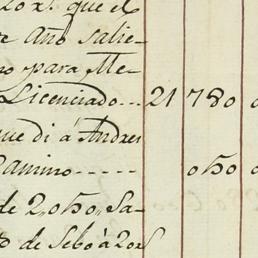 20 x.s que el
e Año salie-
no para Me-
Licenciado... 21 780
que di á Andres
Camino----- 050
de 2,050, Sa-
to de Sebo à 20 x.s